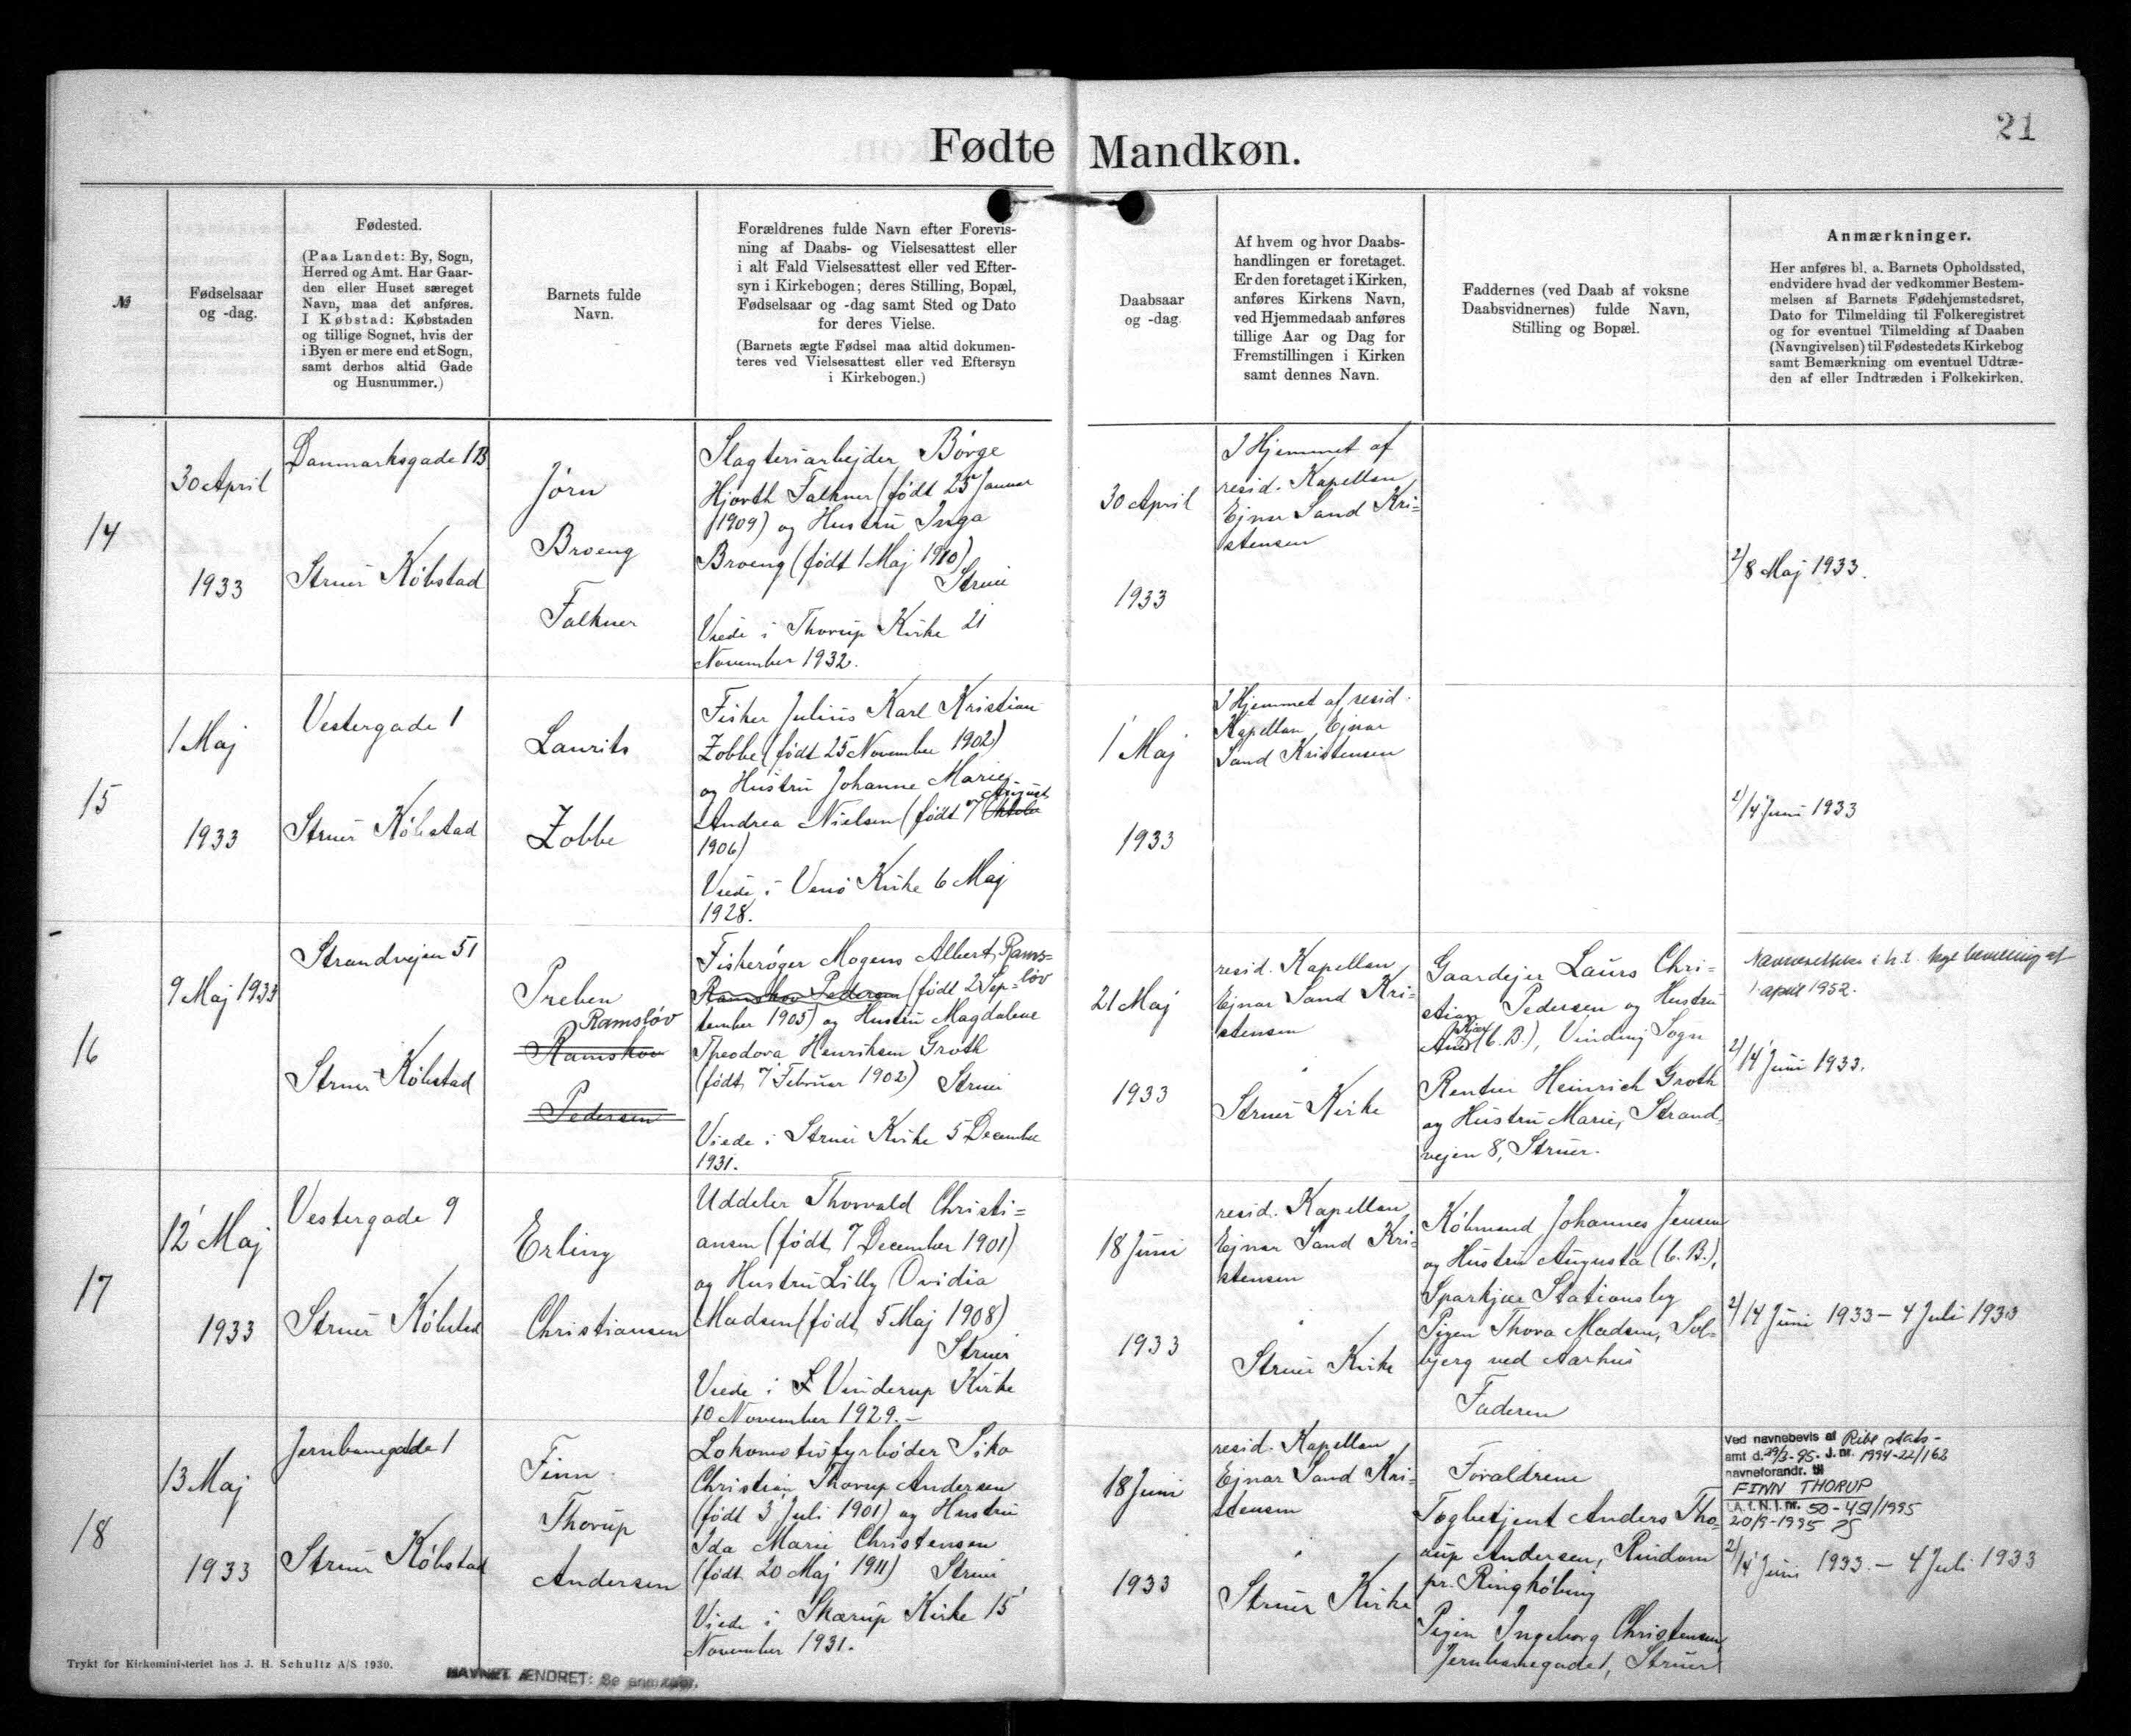 21
Fødte Mandkøn.
№
Fødselsaar
og -dag.
Fødested.
(Paa Landet: By, Sogn,
Herred og Amt. Har Gaar-
den eller Huset særeget
Navn, maa det anføres.
I Købstad: Købstaden
og tillige Sognet, hvis der
i Byen er mere end et Sogn,
samt derhos altid Gade
og Husnummer.)
Barnets fulde
Navn.
Forældrenes fulde Navn efter Forevis-
ning af Daabs- og Vielsesattest eller
i alt Fald Vielsesattest eller ved Efter-
syn i Kirkebogen; deres Stilling, Bopæl,
Fødselsaar og -dag samt Sted og Dato
for deres Vielse.
(Barnets ægte Fødsel maa altid dokumen-
teres ved Vielsesattest eller ved Eftersyn
i Kirkebogen.)
Daabsaar
og -dag.
Af hvem og hvor Daabs-
handlingen er foretaget.
Er den foretaget i Kirken,
anføres Kirkens Navn,
ved Hjemmedaab anføres
tillige Aar og Dag for
Fremstillingen i Kirken
samt dennes Navn.
Faddernes (ved Daab af voksne
Daabsvidnernes) fulde Navn,
Stilling og Bopæl.
Anmærkninger.
Her anføres bl. a. Barnets Opholdssted,
endvidere hvad der vedkommer Bestem-
melsen af Barnets Fødehjemstedsret,
Dato for Tilmelding til Folkeregistret
og for eventuel Tilmelding af Daaben
(Navngivelsen) til Fødestedets Kirkebog
samt Bemærkning om eventuel Udtræ-
den af eller Indtræden i Folkekirken.
14
30 April
1933
Danmarksgade 1B
Struer Købstad
Jørn
Broeng
Falkner
Slagteriarbejder Børge
Hjorth Falkner (født 25 Januar
1909) og Hustru Inga
Broeng (født 1 Maj 1910)
Struer
Viede i Thorup Kirke 21
November 1932.
30 April
1933
I Hjemmet af
resid. Kapellan
Ejnar Sand Kri-
stensen
2/8 Maj 1933.
15
1 Maj
1933
Vestergade 1
Struer Købstad
Laurits
Zobbe
Fisker Julius Karl Kristian
Zobbe (født 25 November 1902)
og Hustru Johanne Marie
August
Andrea Nielsen (født 7 Oktober
1906)
Viede i Venø Kirke 6 Maj
1928.
1 Maj
1933
I Hjemmet af resid.
Kapellan Ejnar
Sand Kristensen
2/14 Juni 1933
16
9 Maj 1933
Strandvejen 51
Struer Købstad
Preben
Ramsløv
Ramskov
Pedersen
Fiskerøger Mogens Albert Rams-
løv
Ramskov Pedersen (født 2 Sep-
tember 1905) og Hustru Magdalene
Theodora Henriksen Groth
(født 7 Februar 1902) Struer
Viede i Struer Kirke 5 December
1931.
21 Maj
1933
resid. Kapellan
Ejnar Sand Kri-
stensen
Struer Kirke
Gaardejer Laurs Chri-
stian Pedersen og Hustru
(C. B.), Vinding Sogn
Rentier Heinrich Groth
og Hustru Marie, Strand-
vejen 8, Struer.
i h. t. kgl bevilling af
1. april 1952.
2/14 Juni 1933.
17
12 Maj
1933
Vestergade 9
Struer Købstad
Erling
Christiansen
Uddeler Thorvald Christi-
ansen (født 7 December 1901)
og Hustru Lilly Ovidia
Madsen (født 5 Maj 1908)
Struer
Viede i Vinderup Kirke
10 November 1929.-
18 Juni
1933
resid. Kapellan
Ejnar Sand Kri-
stensen
Struer Kirke
Købmand Johannes Jensen
og Hustru Augusta (C. B.),
Sparkjær Stationsby
Pigen Thora Madsen, Sol-
bjerg ved Aarhus
Faderen
2/14 Juni 1933 - 4 Juli 1933
18
13 Maj
1933
Jernbanegade 1
Struer Købstad
Finn
Thorup
Andersen
Lokomotivfyrbøder Siko
Christian Thorup Andersen
(født 3 Juli 1901) og Hustru
Ida Marie Christensen
(født 20 Maj 1911) Struer
Viede i Skærup Kirke 15
November 1931.
18 Juni
1933
resid. Kapellan
Ejnar Sand Kri-
stensen
Struer Kirke
Forældrene
Togbetjent Anders Tho-
rup Andersen, Rindum
pr. Ringkøbing
Pigen Ingeborg Christensen
Jernbanegade 1, Struer
Ved navnebevis af Ribe stats-
amt d. 29/3-95. J. nr. 1994-22/162
navneforandr. til
FINN THORUP
50-451/1995
20/9-1995
2/14 Juni 1933. - 4 Juli 1933
Trykt for Kirkeministeriet hos J. H. Schultz A/S 1930.
NAVNET ÆNDRET: Se anmærkn.